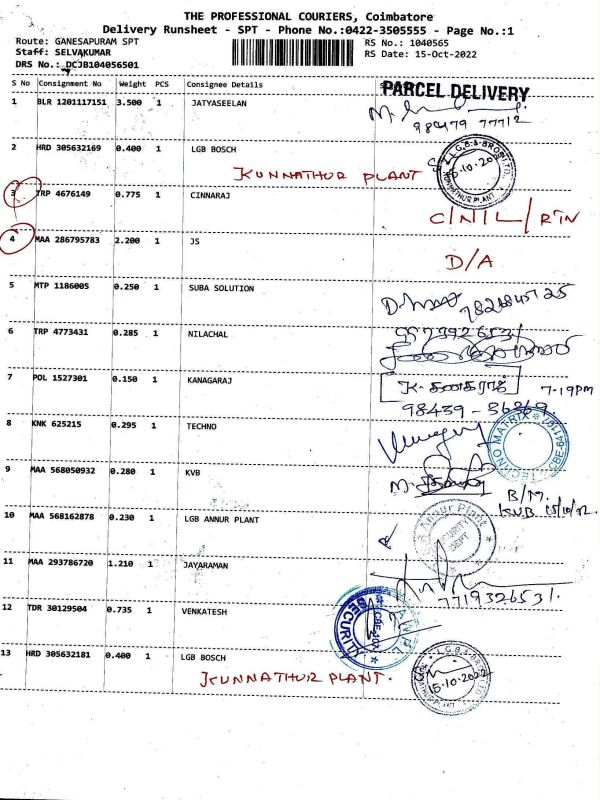 THE PROFESSIONAL COURIERS, Coimbatore
Delivery Runsheet - SPT - Phone No.:0422-3505555 - Page No.:1
Route: GANESAPURAM SPT RS No.: 1040565
Staff: SELVAKUMAR RS Date: 15-Oct-2022
DRS No.: DCJB104056501
S No Consignment No Weight PCS Consignee Details
PARCEL DELIVERY
1 BLR 1201117151 3.500 1 JATYASEELAN
2 HRD 305632169 0.400 1 LGB BOSCH
KUNNATHUR PLANT
3 TRP 4676149 0.775 1 CINNARAJ
C/N/L/RTN
4 MAA 286795783 2.200 1 JS
D/A
5 MTP 1186005 0.250 1 SUBA SOLUTION
6 TRP 4773431 0.285 1 NILACHAL
7 POL 1527301 0.150 1 KANAGARAJ
K. கனகராஜ் 7-19PM
98439 - 36369
8 KNK 625215 0.295 1 TECHNO
TECHNO MATRIX
9 MAA 568050932 0.280 1 KVB
B/M.
KVB 15/10/22
10 MAA 568162878 0.230 1 LGB ANNUR PLANT
Annur Plant
11 MAA 293786720 1.210 1 JAYARAMAN
7719326531
12 TDR 30129504 0.735 1 VENKATESH
13 HRD 305632181 0.400 1 LGB BOSCH
KUNNATHUR PLANT.
15.10.2022